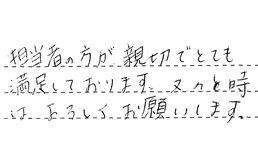 担当者の方が親切でとても
満足しております。又々と時
はよろしくお願いします。